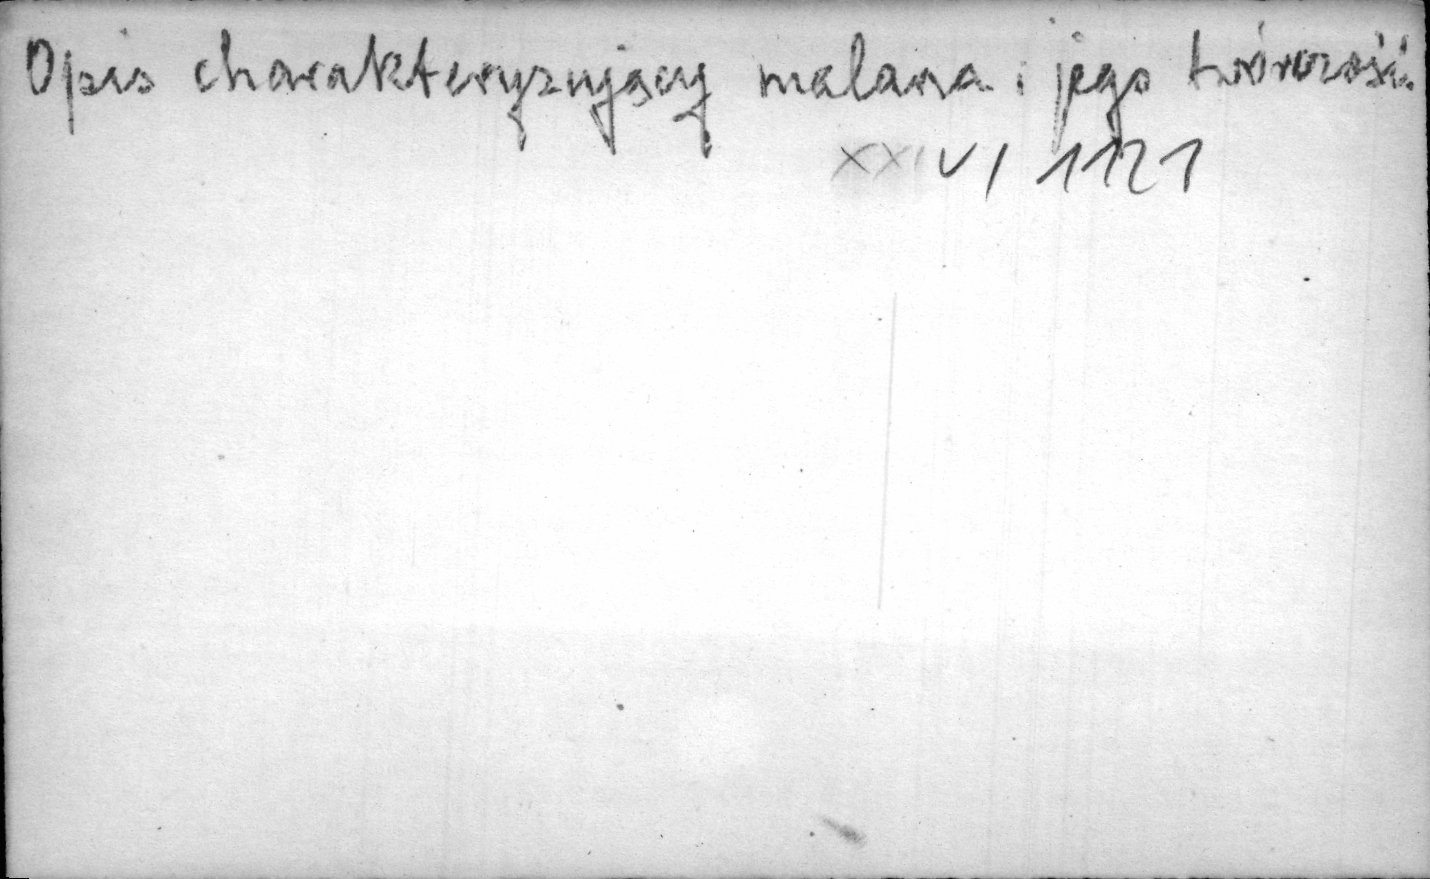 Opis charakteryzujący malarza i jego twórczość.
XXIV/1121